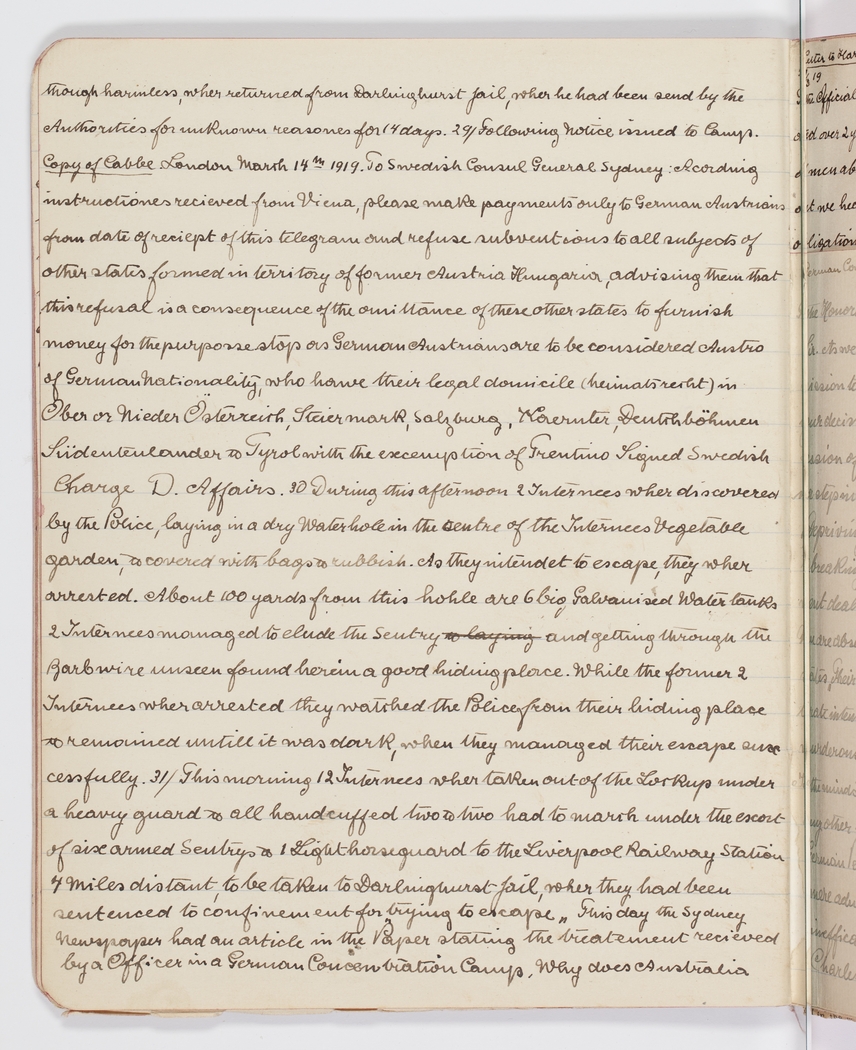 though harmless, wher returned from Darlinghurst Jail, wher he had been send by the
Authorities for unknown reasones for 14 days. 29/ Following Notice issued to Camp.
Copy of Cabbe London March 14th 1919. To Swedish Consul General Sydney: Acording
instructiones recieved from Viena, please make payments only to German Austrians
from date of reciept of this telegram and refuse subventions to all subjects of
other states formed in territory of former Austria Hungaria, advising them that
this refusal is a consequence of the omittance of these other states to furnish
money for the purposse stop as German Austrians are to be considered Austro
of German Nationality, who hawe their legal domicile (heimatsrecht) in
Ober or Nieder Österreich, Steiermark, Salzburg, Kaernter, Deutchböhmen
Südentenlander & Tyrol with the excemption of Trentino Signed Swedish
Charge D. Affairs. 30 During this afternoon 2 Internees wher discovered
by the Police, laying in a dry Waterhole in the centre of the Internees Vegetable
garden, & covered with bags & rubbish. As they intendet to escape, they wher
arrested. About 100 yards from this hohle are 6 big Galvanised Water tanks
2 Internees managed to elude the Sentry & laying and getting through the
Barbwire unseen found herein a good hiding place. While the former 2
Internees wher arrested they watched the Police from their hiding place
& remained untill it was dark, when they managed their escape suc
cessfully. 31/ This morning 12 Internees wher taken out of the Lockup under
a heavy guard & all handcuffed two & two had to march under the escort
of six armed Sentrys & 1 Lighthorseguard to the Liverpool Railway Station
4 Miles distant, to be taken to Darlinghurst Jail, wher they had been
sentenced to confinement for „trying to escape„ This day the Sydney
Newspaper had an article in the Paper stating the treatement recieved
by a Officer in a German Concentration Camp. Why does Australia